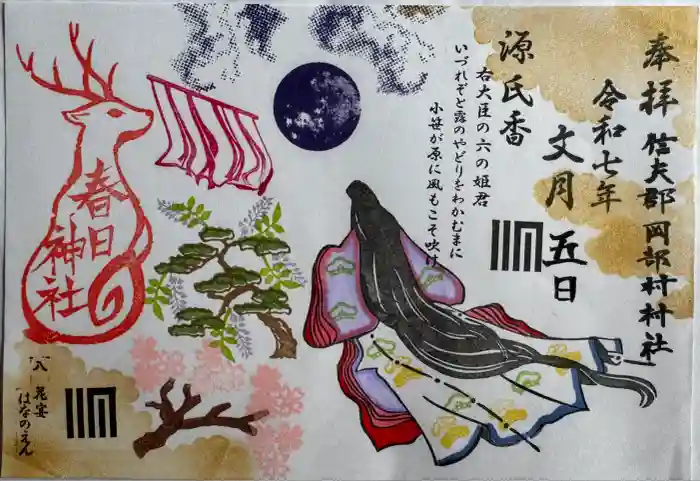 奉拝 信夫郡岡部村村社
令和七年
文月 五日
源氏香
右大臣の六の姫君
いづれぞと露のやどりをわかむまに
小笹が原に風もこそ吹け
春日
神社
「八 花宴
はなのえん」